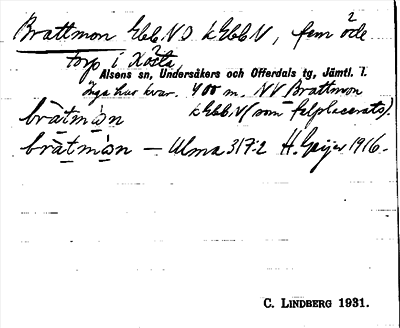 Brattmon Ebl. NO kEbl. N, fem öde
torp i Kösta,
Alsens sn, Undersåkers och Offerdals tg, Jämtl. l.
inga hus kvar. 400 m. NV Brattmon
kEbl. V (som felplacerats).
bràtmɷn
bràtmɷn — Ulma 317:2 H. Geijer 1916.
C. LINDBERG 1931.